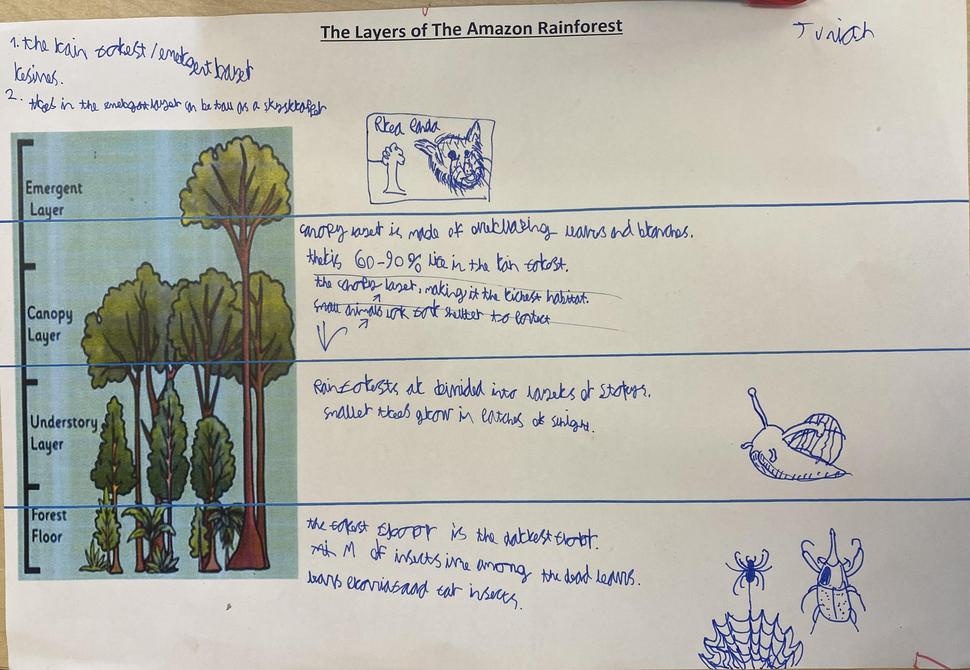 The Layers of The Amazon Rainforest
1. the Rain forest / emergent layer
2. trees in the emergent layer can be tall as a skyskraper
Red Panda
Emergent
Layer
canopy layer is made of overlaping leaves and branches.
60-90% life in the rain forest.
the canopy layer, making it the richest habitat.
small animals look for shelter to
Canopy
Layer
Rainforests are divided into layers of storeys.
smaller trees grow in patches of sunlight.
Understory
Layer
the forest floor is the darkest floor.
of insects live among the dead leaves.
and eat insects.
Forest
Floor